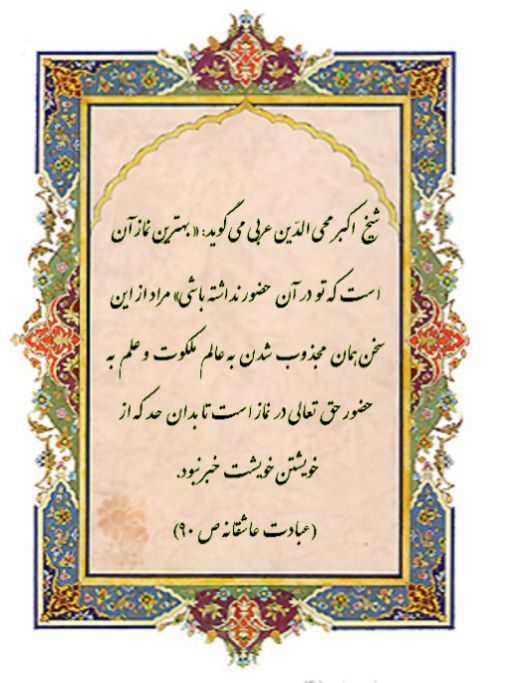 شیخ اکبر محی الدّین عربی می گوید: «بهترین نماز آن
است که تو در آن حضور نداشته باشی» مراد از این
سخن همان مجذوب شدن به عالم ملکوت و علم به
حضور حق تعالی در نماز است تا بدان حد که از
خویشتن خویشت خبر نبود.
(عبادت عاشقانه ص ۹۰)